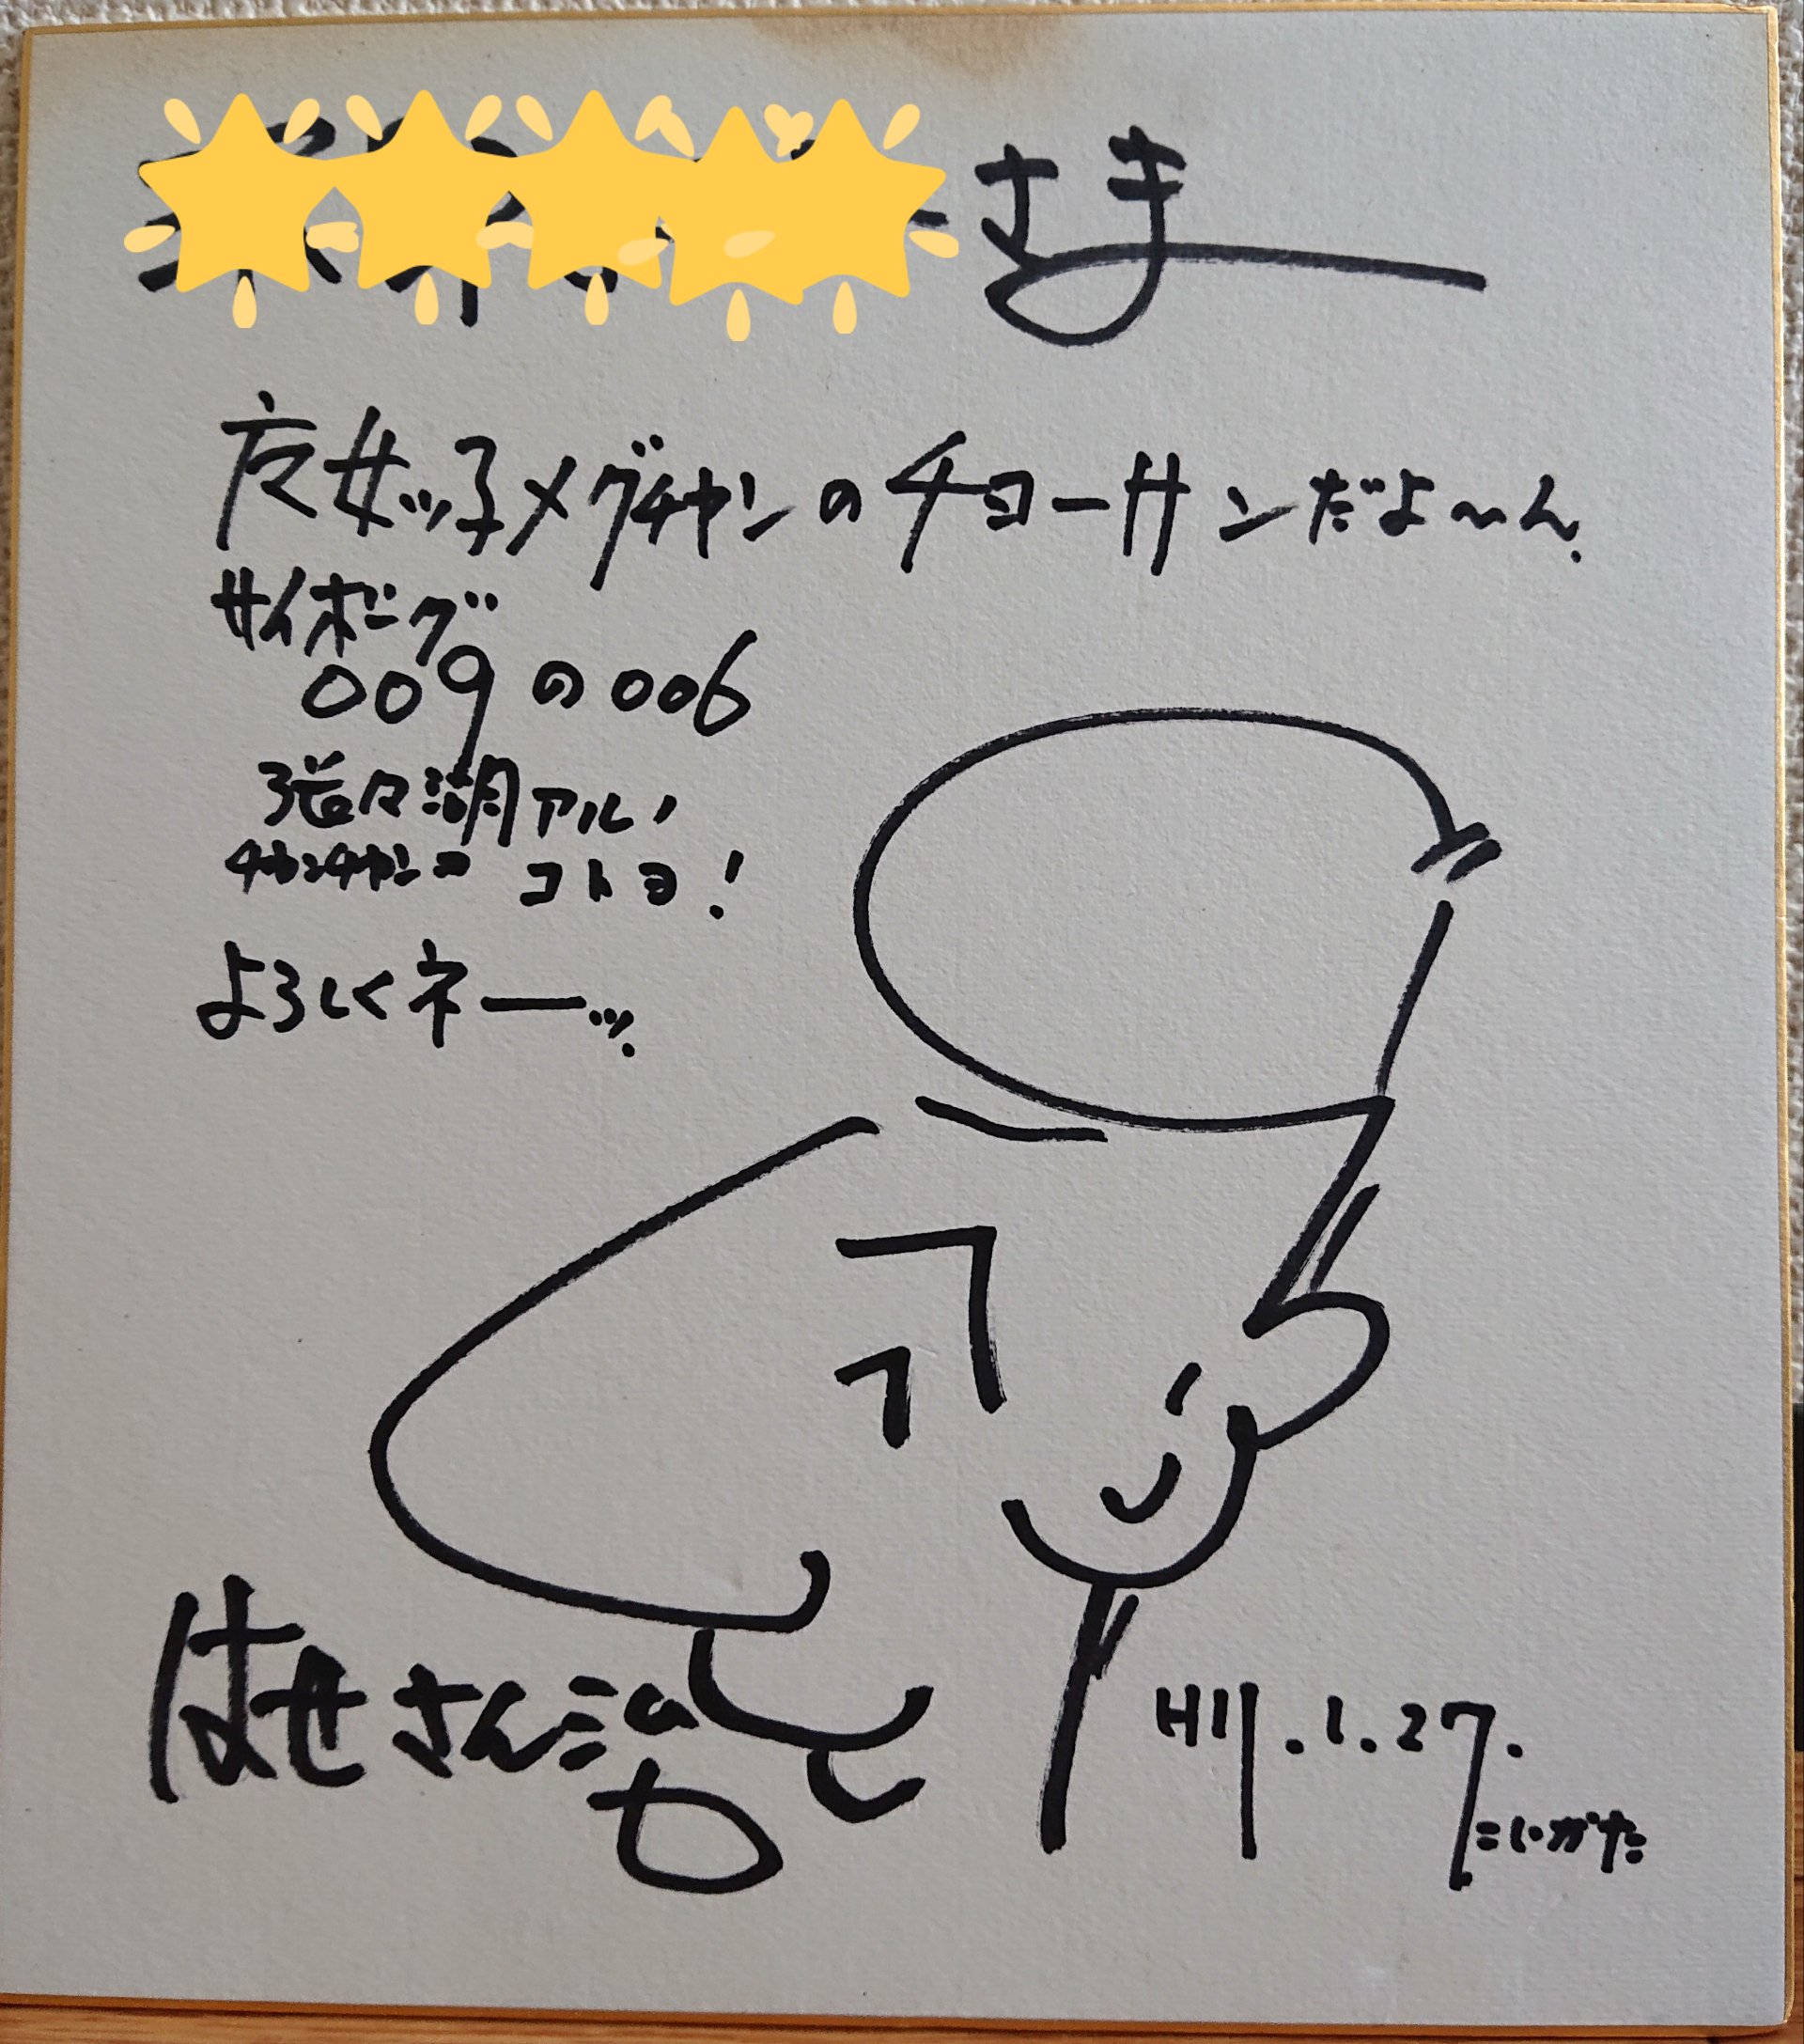 さま
魔女ッ子メグチャンのチョーサンだよ〜ん。
サイボーグ
009の006
張々湖アル！
チャンチャンコ コトヨ！
よろしくネーッ。
はせさん治
H11.1.27.
にいがた